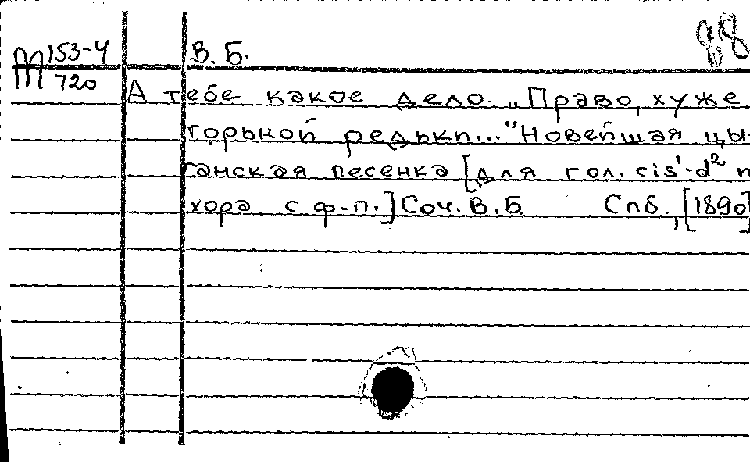 88
М 153-4 В. Б.
720
А тебе какое дело. „Право, хуже
горькой редьки..." Новейшая цы-
ганская песенка [для гол. cis¹-d² и
хора с ф-п.] Соч. В. Б. Спб., [1890]